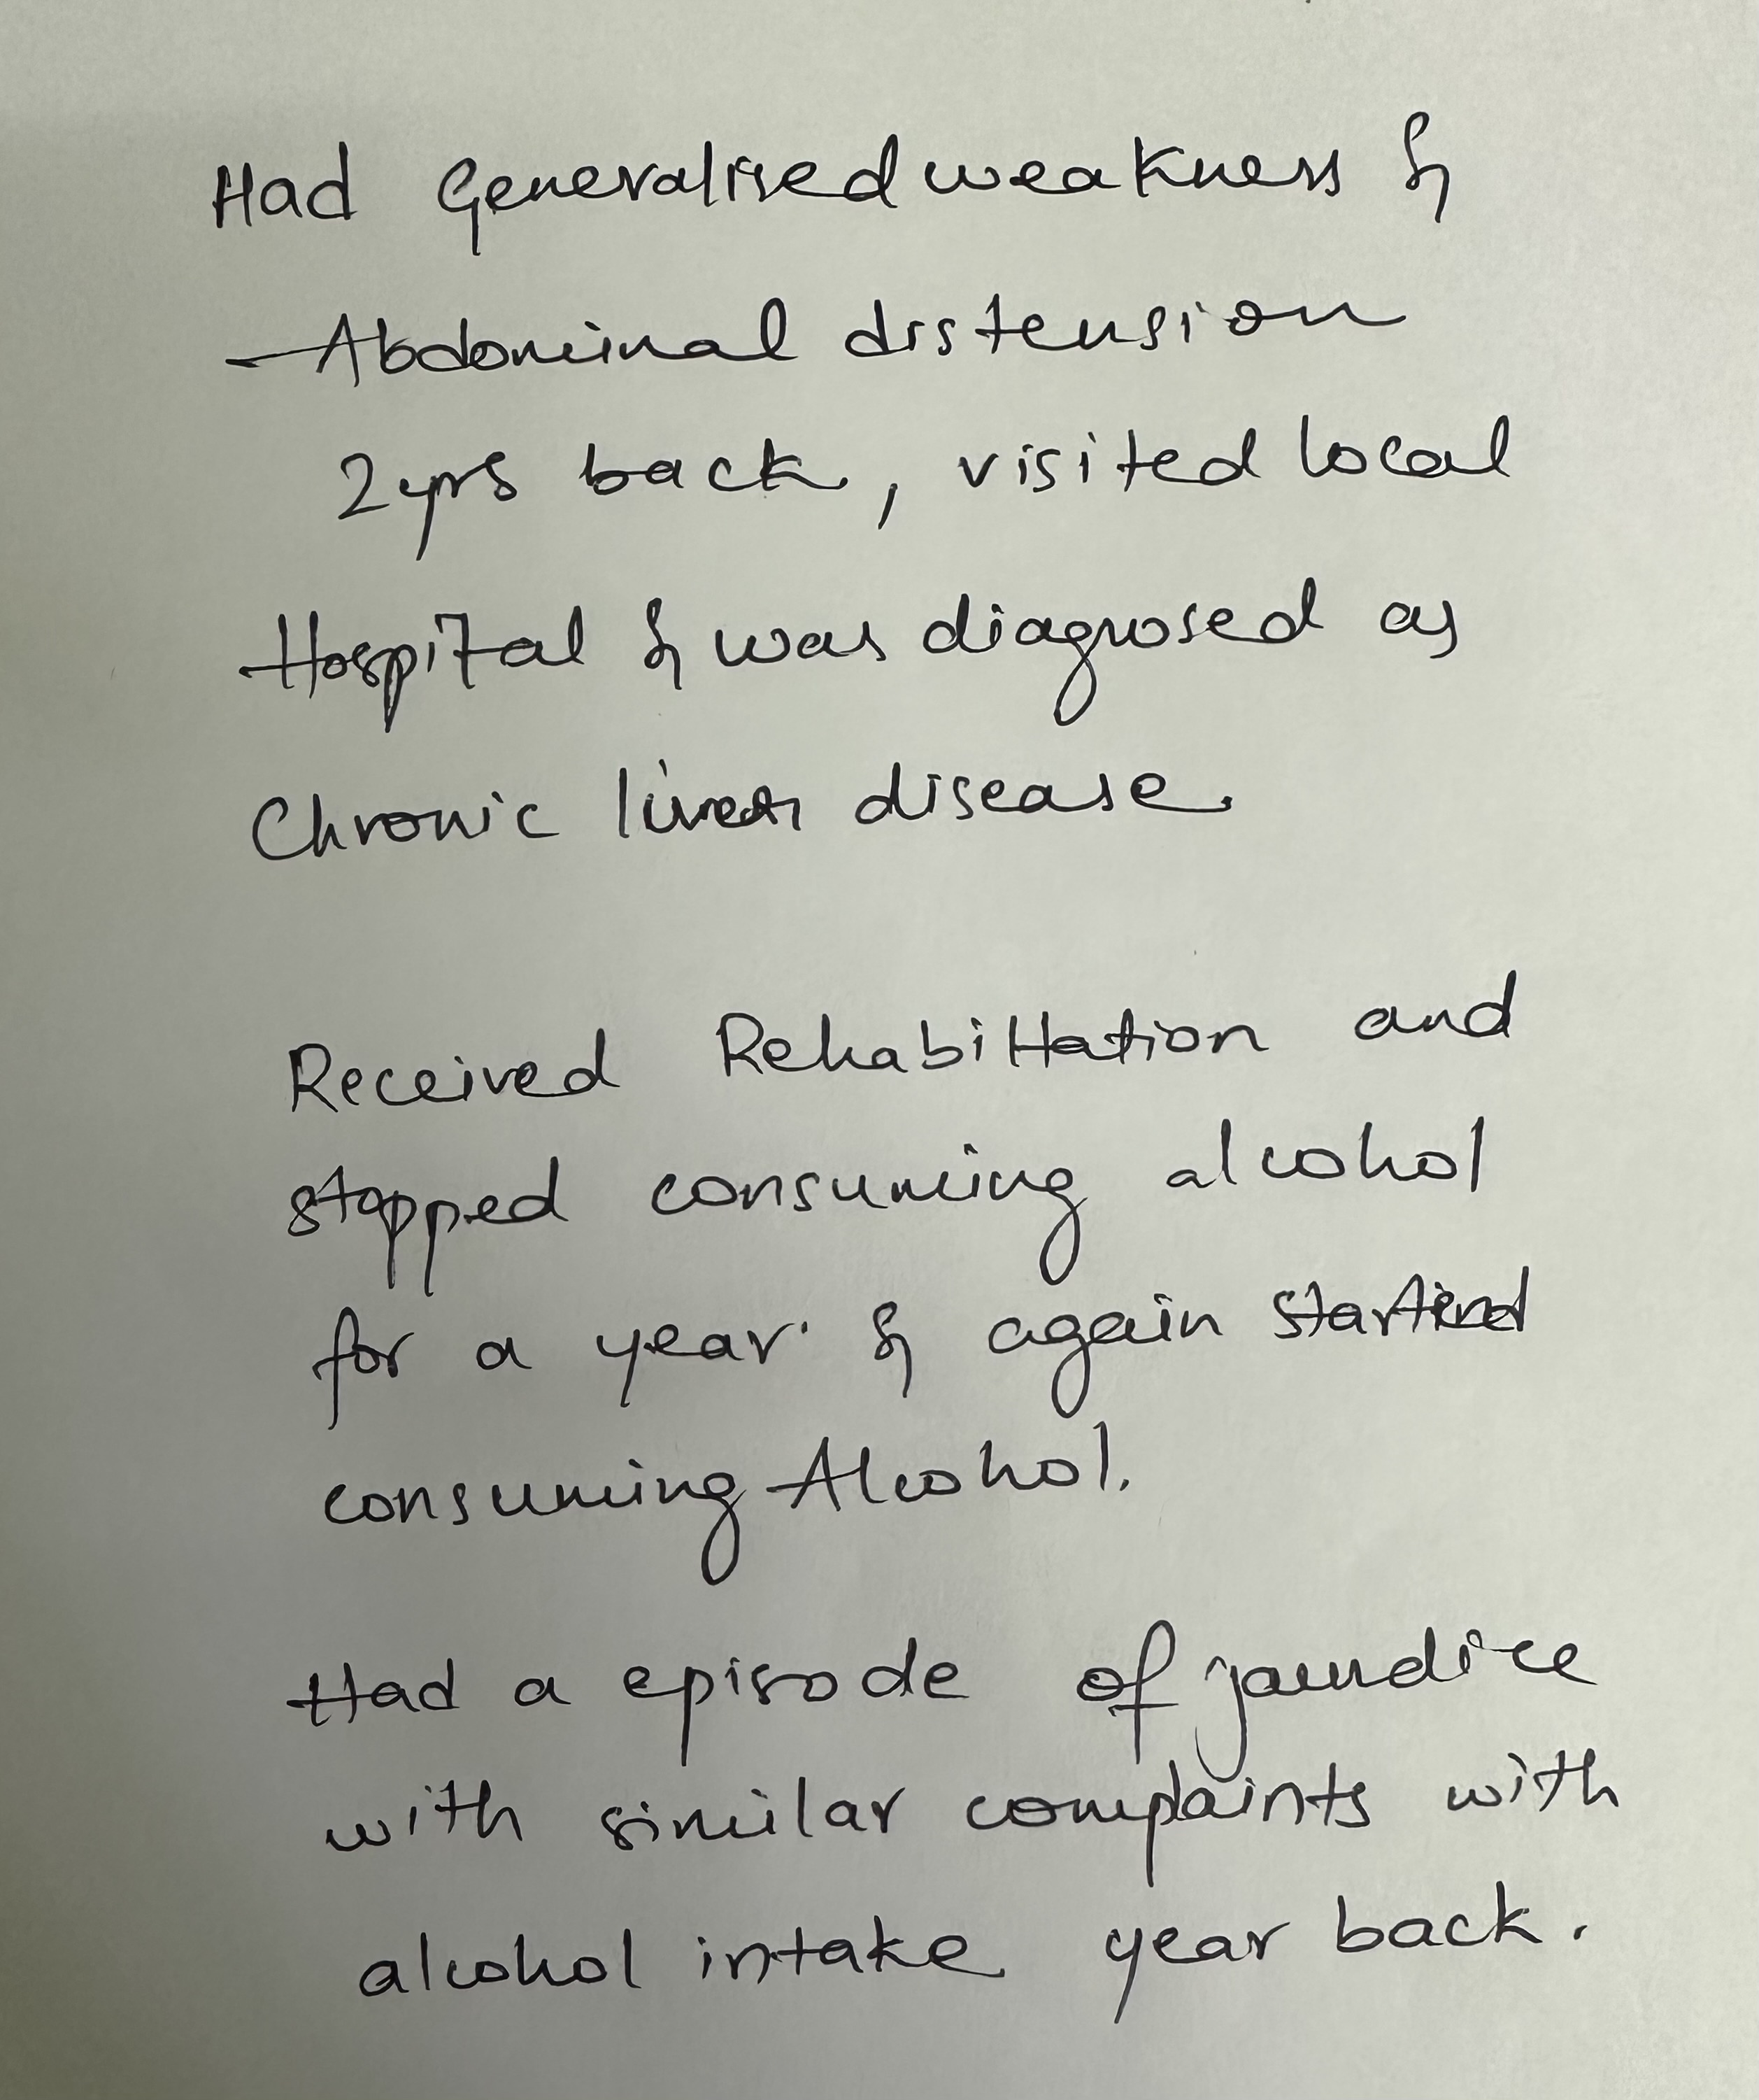 Had Generalised weakness &
Abdominal distension
2yrs back, visited local
Hospital & was diagnosed as
Chronic liver disease.
Received Rehabilitation and
stopped consuming alcohol
for a year & again started
consuming Alcohol.
Had a episode of jaundice
with similar complaints with
alcohol intake year back.